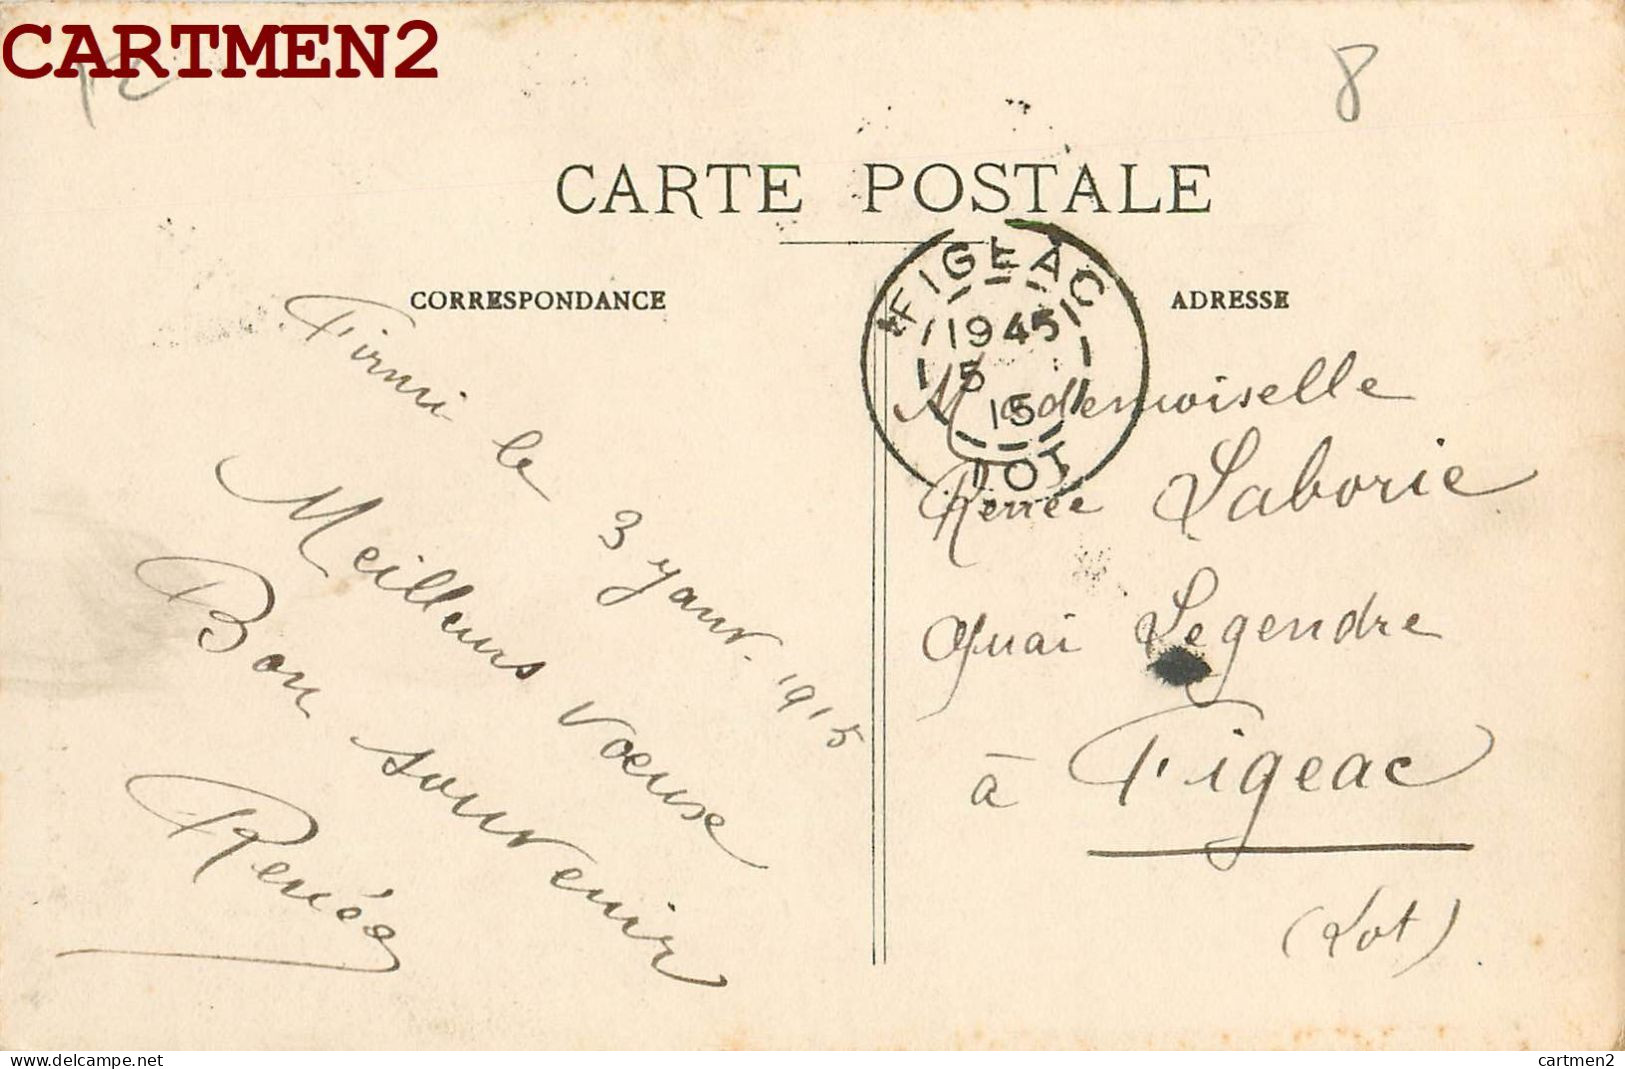 CARTMEN2
8
CARTE POSTALE
CORRESPONDANCE
ADRESSE
FIGEAC
1945
5
15
LOT
Firmi le 3 janvr. 1915
Meilleurs voeux
Bon souvenir
Renée
Mademoiselle
Renée Laborie
Quai Legendre
à Figeac
(Lot)
delcampe.net
cartmen2